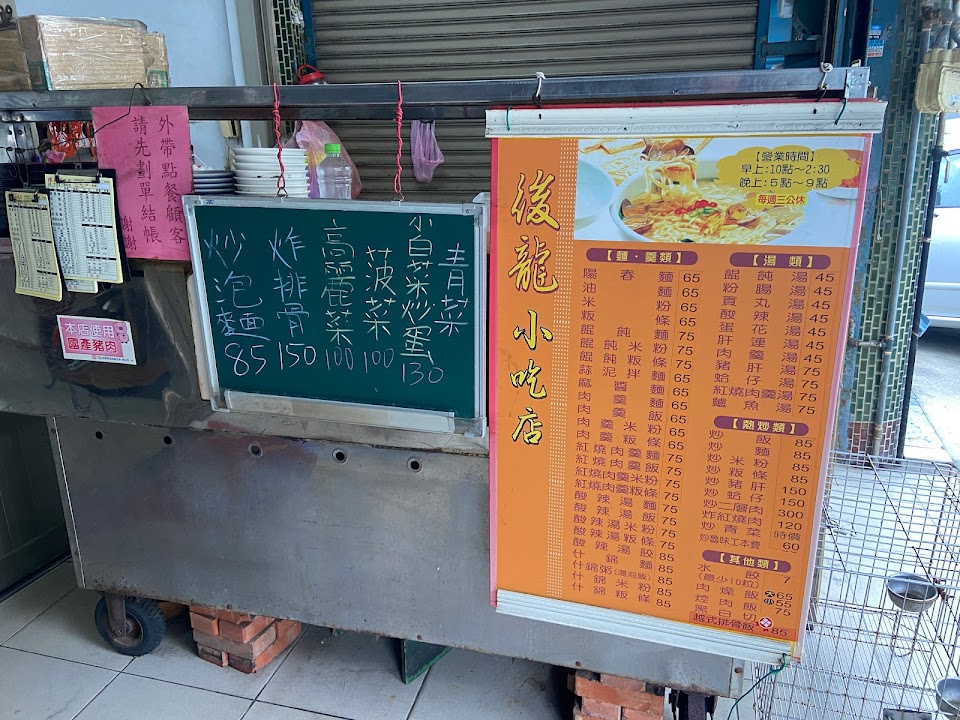 外帶點餐顧客
請先劃單結帳
謝謝
本店使用
國產豬肉
青菜
小白菜炒蛋130
菠菜100
高麗菜100
炸排骨150
炒泡麵85
後龍小吃店
【營業時間】
早上:10點~2:30
晚上:5點~9點
每週三公休
【麵・羹類】
陽春麵65
油麵65
米粉65
粄條65
餛飩麵75
餛飩米粉75
餛飩粄條75
蒜泥拌麵75
麻醬麵65
肉羹麵65
肉羹飯65
肉羹米粉65
肉羹粄條65
紅燒肉羹麵75
紅燒肉羹飯75
紅燒肉羹米粉75
紅燒肉羹粄條75
酸辣湯麵75
酸辣湯飯75
酸辣湯米粉75
酸辣湯粄條75
酸辣湯餃85
什錦麵85
什錦粥(湯泡飯)85
什錦米粉85
什錦粄條85
【湯類】
餛飩湯45
粉腸湯45
貢丸湯45
酸辣湯45
蛋花湯45
肝連湯45
肉羹湯45
豬肝湯75
蛤仔湯75
紅燒肉羹湯75
鱸魚湯75
【熱炒類】
炒飯85
炒麵85
炒米粉85
炒粄條85
炒豬肝150
炒蛤仔150
炒二層肉300
炸紅燒肉120
炒青菜時價
炒魯味工本費60
【其他類】
水餃7
(最少10粒)
肉燥飯大65小55
焢肉飯75
黑白切
越式排骨飯85